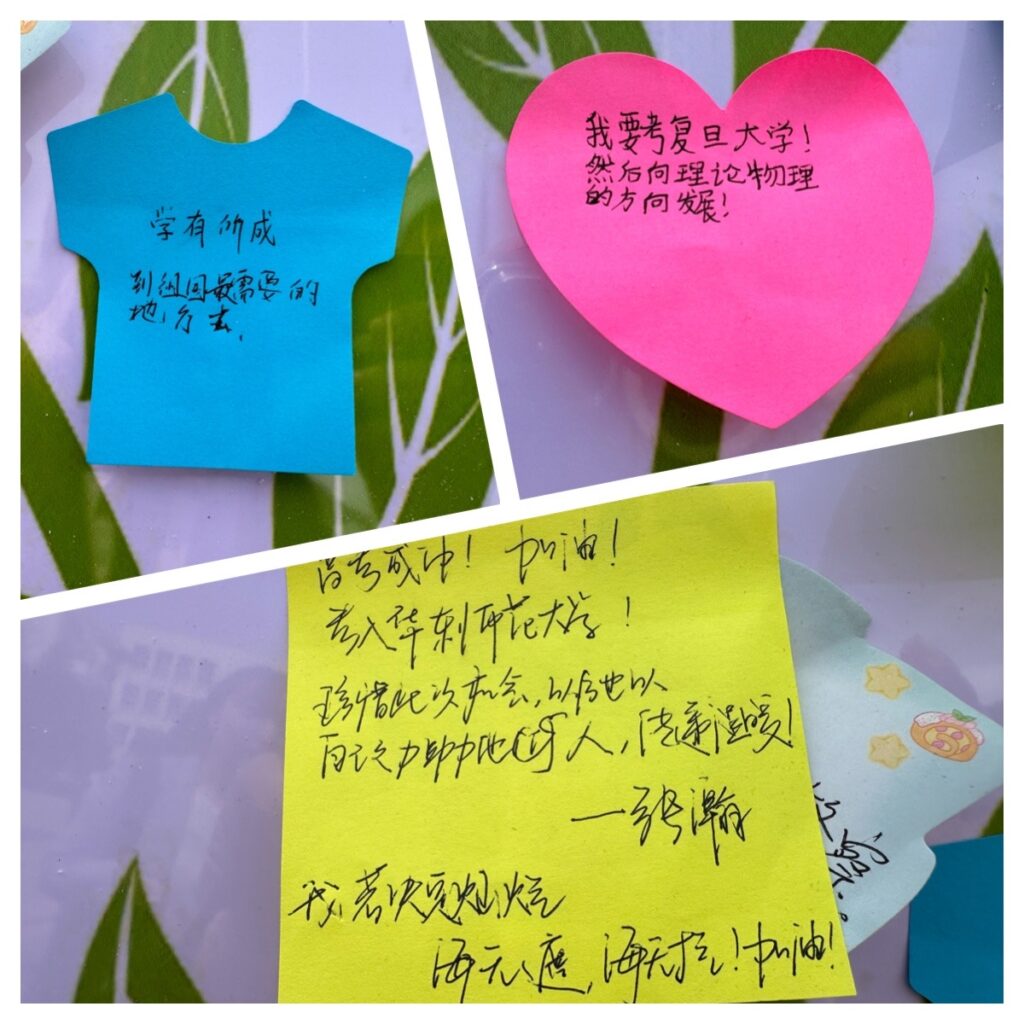 学有所成
到祖国最需要的
地方去.
我要考复旦大学!
然后向理论物理
的方向发展!
高考成功! 加油!
考入华东师范大学!
珍惜此次机会,以后也以
自己力助力他人,传递温暖!
—张瀚
我若决定灿烂
海无, 海无拦!加油!